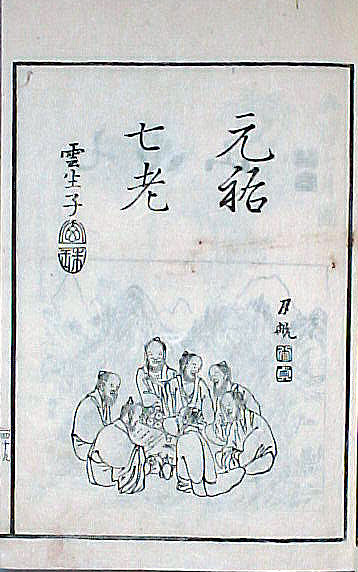 元祐
七老
雲生子
月航
四十九